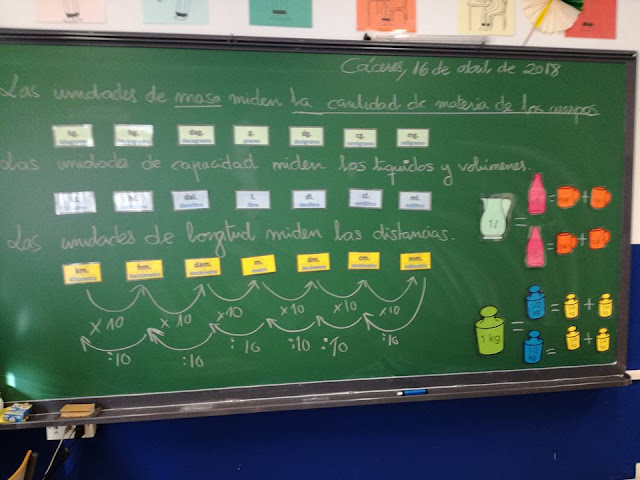 Cáceres, 16 de abril de 2018
Las unidades de masa miden la cantidad de materia de los cuerpos.
kg. hg. dag. g. dg. cg. mg.
kilogramo hectogramo decagramo gramo decigramo centigramo miligramo
Las unidades de capacidad miden los líquidos y volúmenes.
dal. l. dl. cl. ml.
decalitro litro decilitro centilitro mililitro
Las unidades de longitud miden las distancias.
km. hm. dam. m. dm. cm. mm.
kilómetro hectómetro decámetro metro decímetro centímetro milímetro
x10 x10 x10 x10 x10 x10
:10 :10 :10 :10 :10 :10
1 l = = +
= +
1 kg = = +
= +